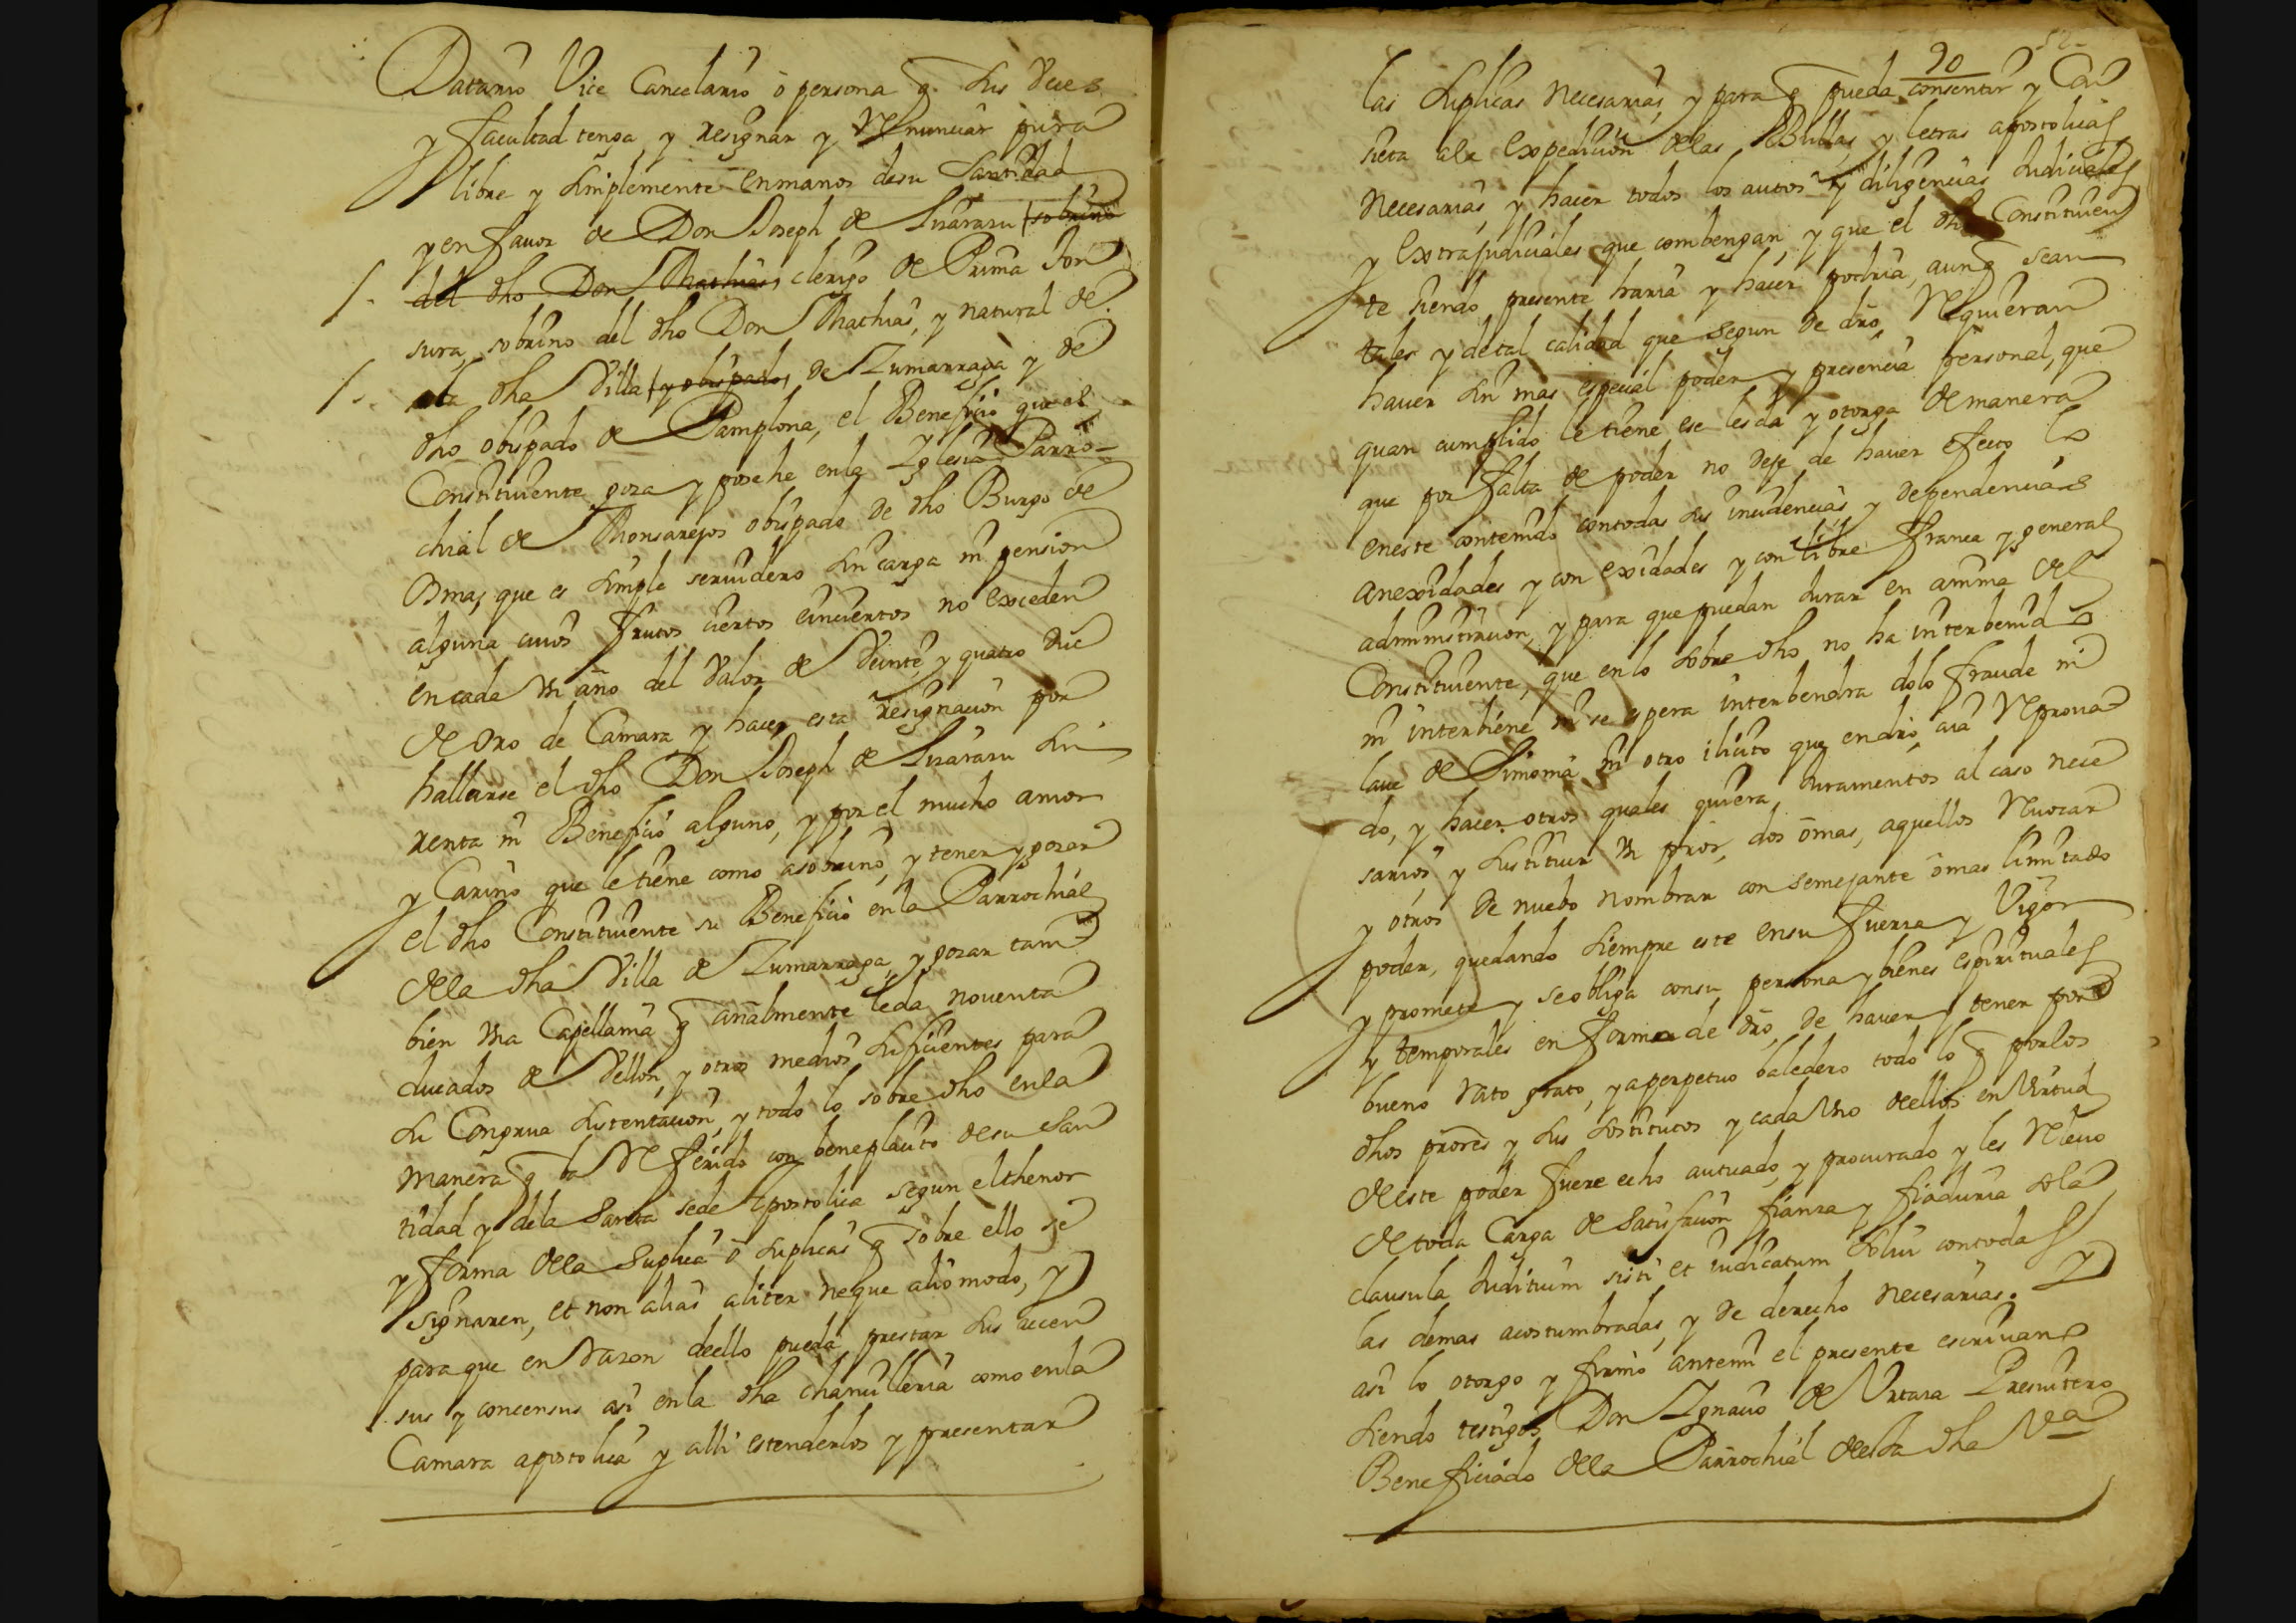 Datario Vice Cancelario ô persona q̃ sus veces
y facultad tenga, y resignar y Renunciar pura
libre y simplemente en manos de su Santidad
y en fauor de Don Joseph de Lizarazu (sobrino
del dho Don Mathias, clerigo de Prima Ton
sura, sobrino del dho Don Mathias, y natural de
la dha Villa (y obispado, de Zumarraga y de
dho obispado de Pamplona, el Beneficio que el
Constituiente goza y posehe en la Yglesia Parro-
chial de Monsarejos obispado de dho Burgo de
Osma, que es simple seruidero sin carga ni pension
alguna cuios frutos ciertos e inciertos no exceden
en cada Un año del Valor de Veinte y quatro duc
de oro de Camara y hace esta resignacion por
hallarse el dho Don Joseph de Lizarazu sin
renta ni Beneficio alguno, y por el mucho amor
y Cariño que le tiene como a sobrino, y tener y gozar
el dho Constituiente su Beneficio en la Parrochial
de la dha Villa de Zumarraga, y gozar tam
bien Una Capellania q̃ añalmente le da nouenta
ducados de Vellon, y otros medios suficientes para
su Congrua sustentacion, y todo lo sobre dho en la
manera q̃ ba Referido con beneplacito de su San
tidad y de la Santa sede Apostolica segun el thenor
y forma de la Suplica ô suplicas q̃ sobre ello se
signaren, et non alias aliter neque alio modo, y
para que en Razon de ello pueda prestar sus accen
sus y concensus asi en la dha chancilleria como en la
Camara apostolica y alli estenderlos y presentar
90
las suplicas necesarias, y para q̃ pueda consentir y Con
sieta a la Expedicion de las Bullas, y letras apostolicas
necesarias, y hacer todos los autos y diligencias Judiciales
y Extrajudiciales que combengan, y que el dho Constituien
te siendo presente haria y hacer podria, aunq̃ sean
tales y de tal calidad que segun de dro, Requieran
hauer sin mas especial poder y presencia personal, que
quan cumplido le tiene ese les da y otorga de manera
que por falta de poder no deje de hauer efecto lo
en este contenido con todas sus incidencias y dependencias
anexidades y conexidades y con libre franca y general
administracion, y para que puedan Jurar en anima del
Constituiente, que en lo sobre dho no ha interbenido
ni interbiene ni se espera interbendra dolo fraude ni
laue de Simonia ni otro ilicito que en dro, aia Reproua
do, y hacer otros quales quiera Juramentos al caso nece
sarios y sustituir Un pror, dos ô mas, aquellos Reuocar
y otros de nuebo nombrar con semejante ô mas limitado
poder, quedando siempre este en su fuerza y Vigor
y promete y se obliga con su persona y bienes espirituales
y temporales en forma de dro, de hauer y tener por
bueno rato grato, y a perpetuo baledero todo lo q̃ por los
dhos prores y sus sostitutos y cada Uno de ellos en Virtud
de este poder fuere echo autuado, y procurado y les Releuo
de toda Carga de Satisfacion fianza y fiaduria so la
clausula Judicium sisti et iudicatum solui con todas
las demas acostumbradas, y de derecho necesarias. Y
asi lo otorgo y firmo ante mi el presente escriuano
siendo testigos Don Ygnacio de Urtaza Presuitero
Beneficiado de la Parrochial de esta dha Va